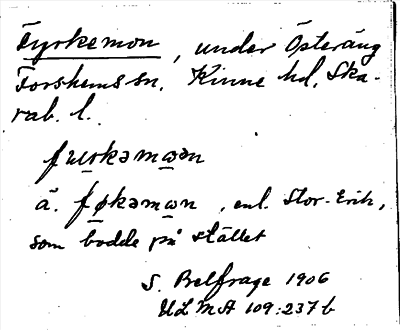 Fyrkemon, under Österäng
Forshems sn. Kinne hd, Ska-
rab. l.
ä. fø̱kəmɷn, enl. Stor-Erik,
som bodde på stället
S. Belfrage 1906
ULMA 109:237b